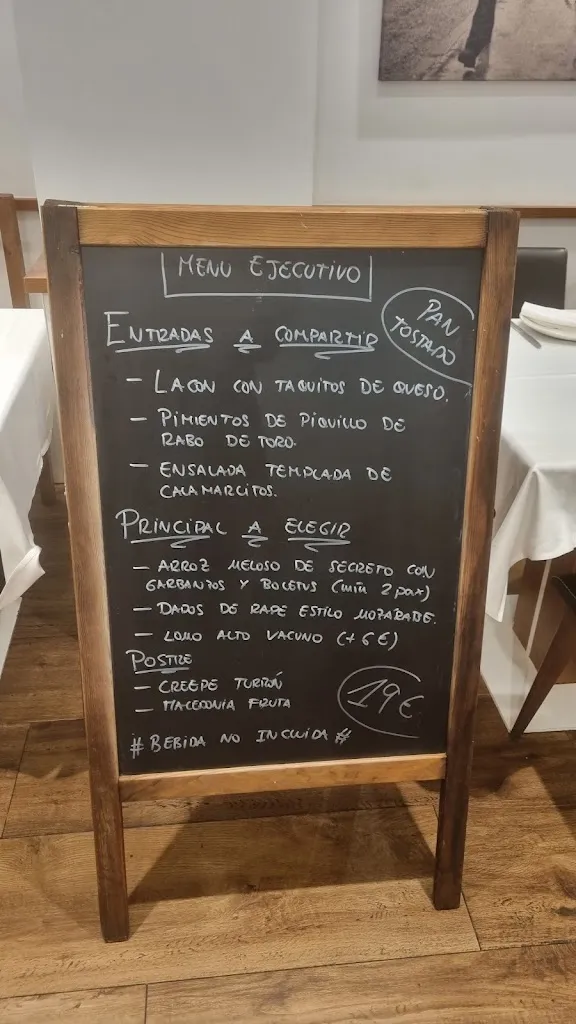 MENU EJECUTIVO
PAN
TOSTADO
ENTRADAS A COMPARTIR
- LACON CON TAQUITOS DE QUESO.
- PIMIENTOS DE PIQUILLO DE
RABO DE TORO.
- ENSALADA TEMPLADA DE
CALAMARCITOS.
PRINCIPAL A ELEGIR
- ARROZ MELOSO DE SECRETO CON
GARBANZOS Y BOLETUS (min 2 pax)
- DADOS DE RAPE ESTILO MOZARABE.
- LOMO ALTO VACUNO (+6€)
POSTRE
- CREEPE TURRÓN
- MACEDONIA FRUTA
19€
# BEBIDA NO INCLUIDA #